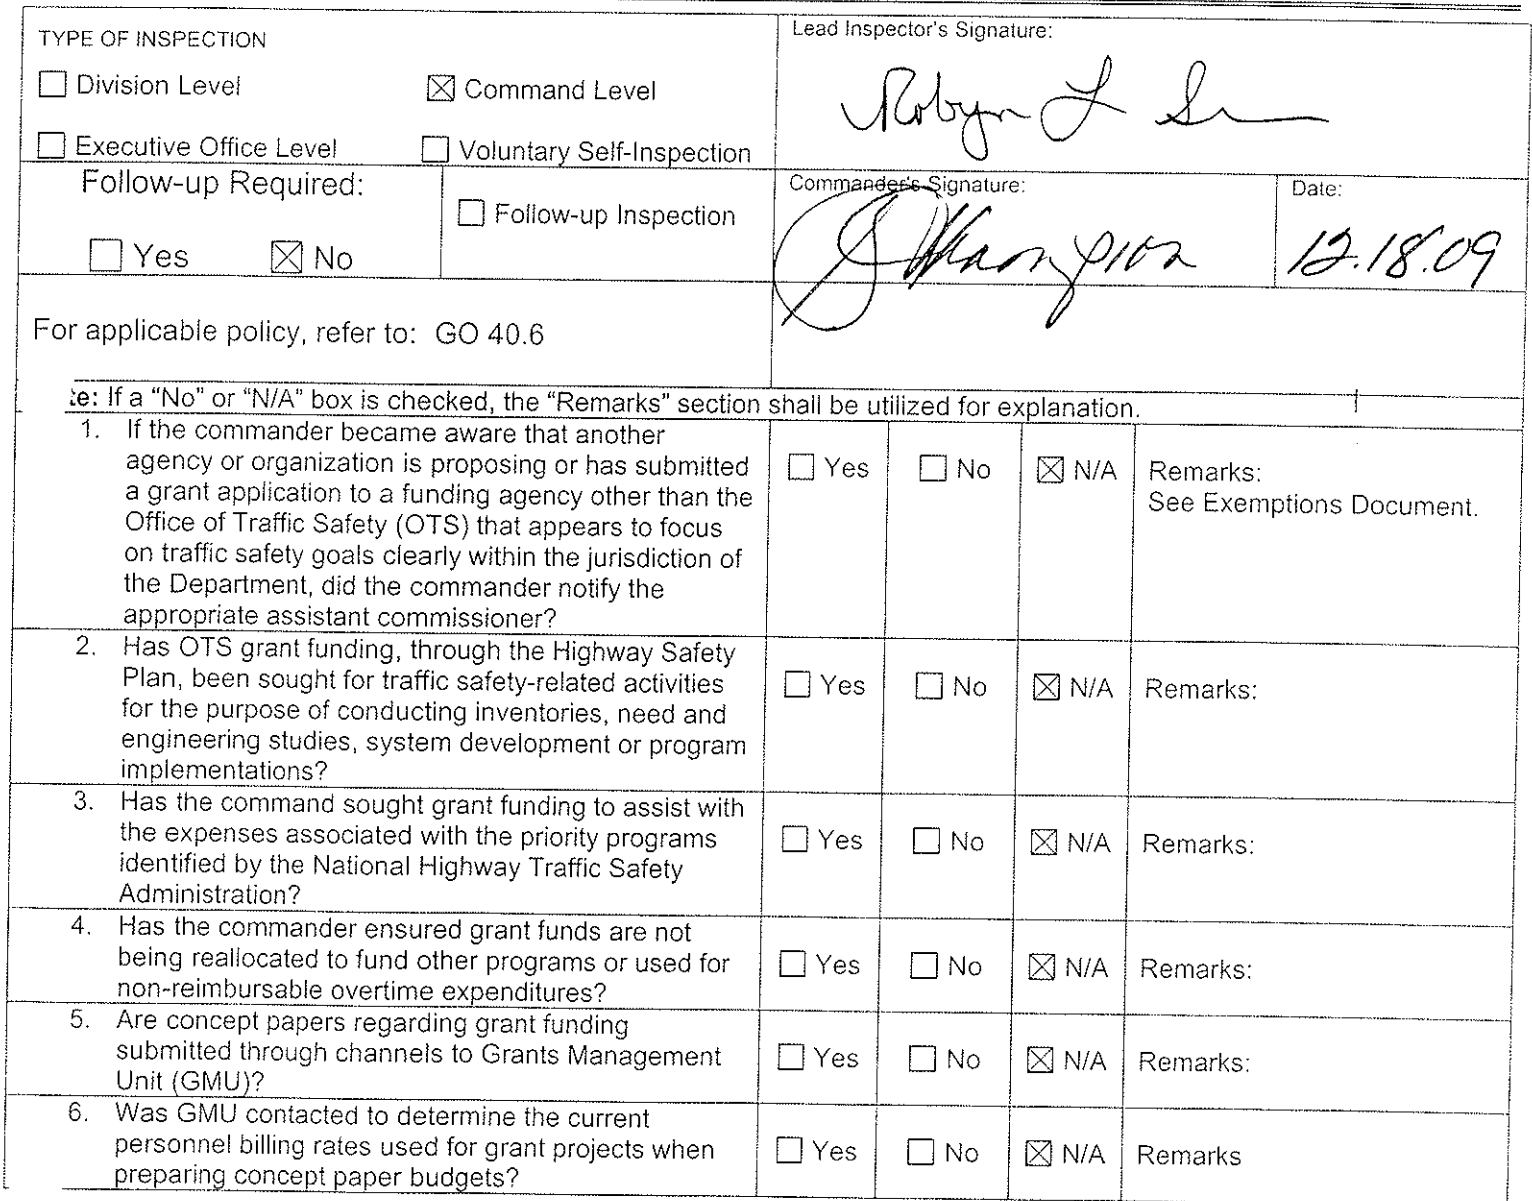 TYPE OF INSPECTION
☐ Division Level ☒ Command Level
☐ Executive Office Level ☐ Voluntary Self-Inspection
Lead Inspector's Signature:
Robyn L
Follow-up Required:
☐ Yes ☒ No
☐ Follow-up Inspection
Commander's Signature:
Date:
12.18.09
For applicable policy, refer to: GO 40.6
te: If a “No” or “N/A” box is checked, the “Remarks” section shall be utilized for explanation.
1. If the commander became aware that another
agency or organization is proposing or has submitted
a grant application to a funding agency other than the
Office of Traffic Safety (OTS) that appears to focus
on traffic safety goals clearly within the jurisdiction of
the Department, did the commander notify the
appropriate assistant commissioner?
☐ Yes ☐ No ☒ N/A Remarks:
See Exemptions Document.
2. Has OTS grant funding, through the Highway Safety
Plan, been sought for traffic safety-related activities
for the purpose of conducting inventories, need and
engineering studies, system development or program
implementations?
☐ Yes ☐ No ☒ N/A Remarks:
3. Has the command sought grant funding to assist with
the expenses associated with the priority programs
identified by the National Highway Traffic Safety
Administration?
☐ Yes ☐ No ☒ N/A Remarks:
4. Has the commander ensured grant funds are not
being reallocated to fund other programs or used for
non-reimbursable overtime expenditures?
☐ Yes ☐ No ☒ N/A Remarks:
5. Are concept papers regarding grant funding
submitted through channels to Grants Management
Unit (GMU)?
☐ Yes ☐ No ☒ N/A Remarks:
6. Was GMU contacted to determine the current
personnel billing rates used for grant projects when
preparing concept paper budgets?
☐ Yes ☐ No ☒ N/A Remarks